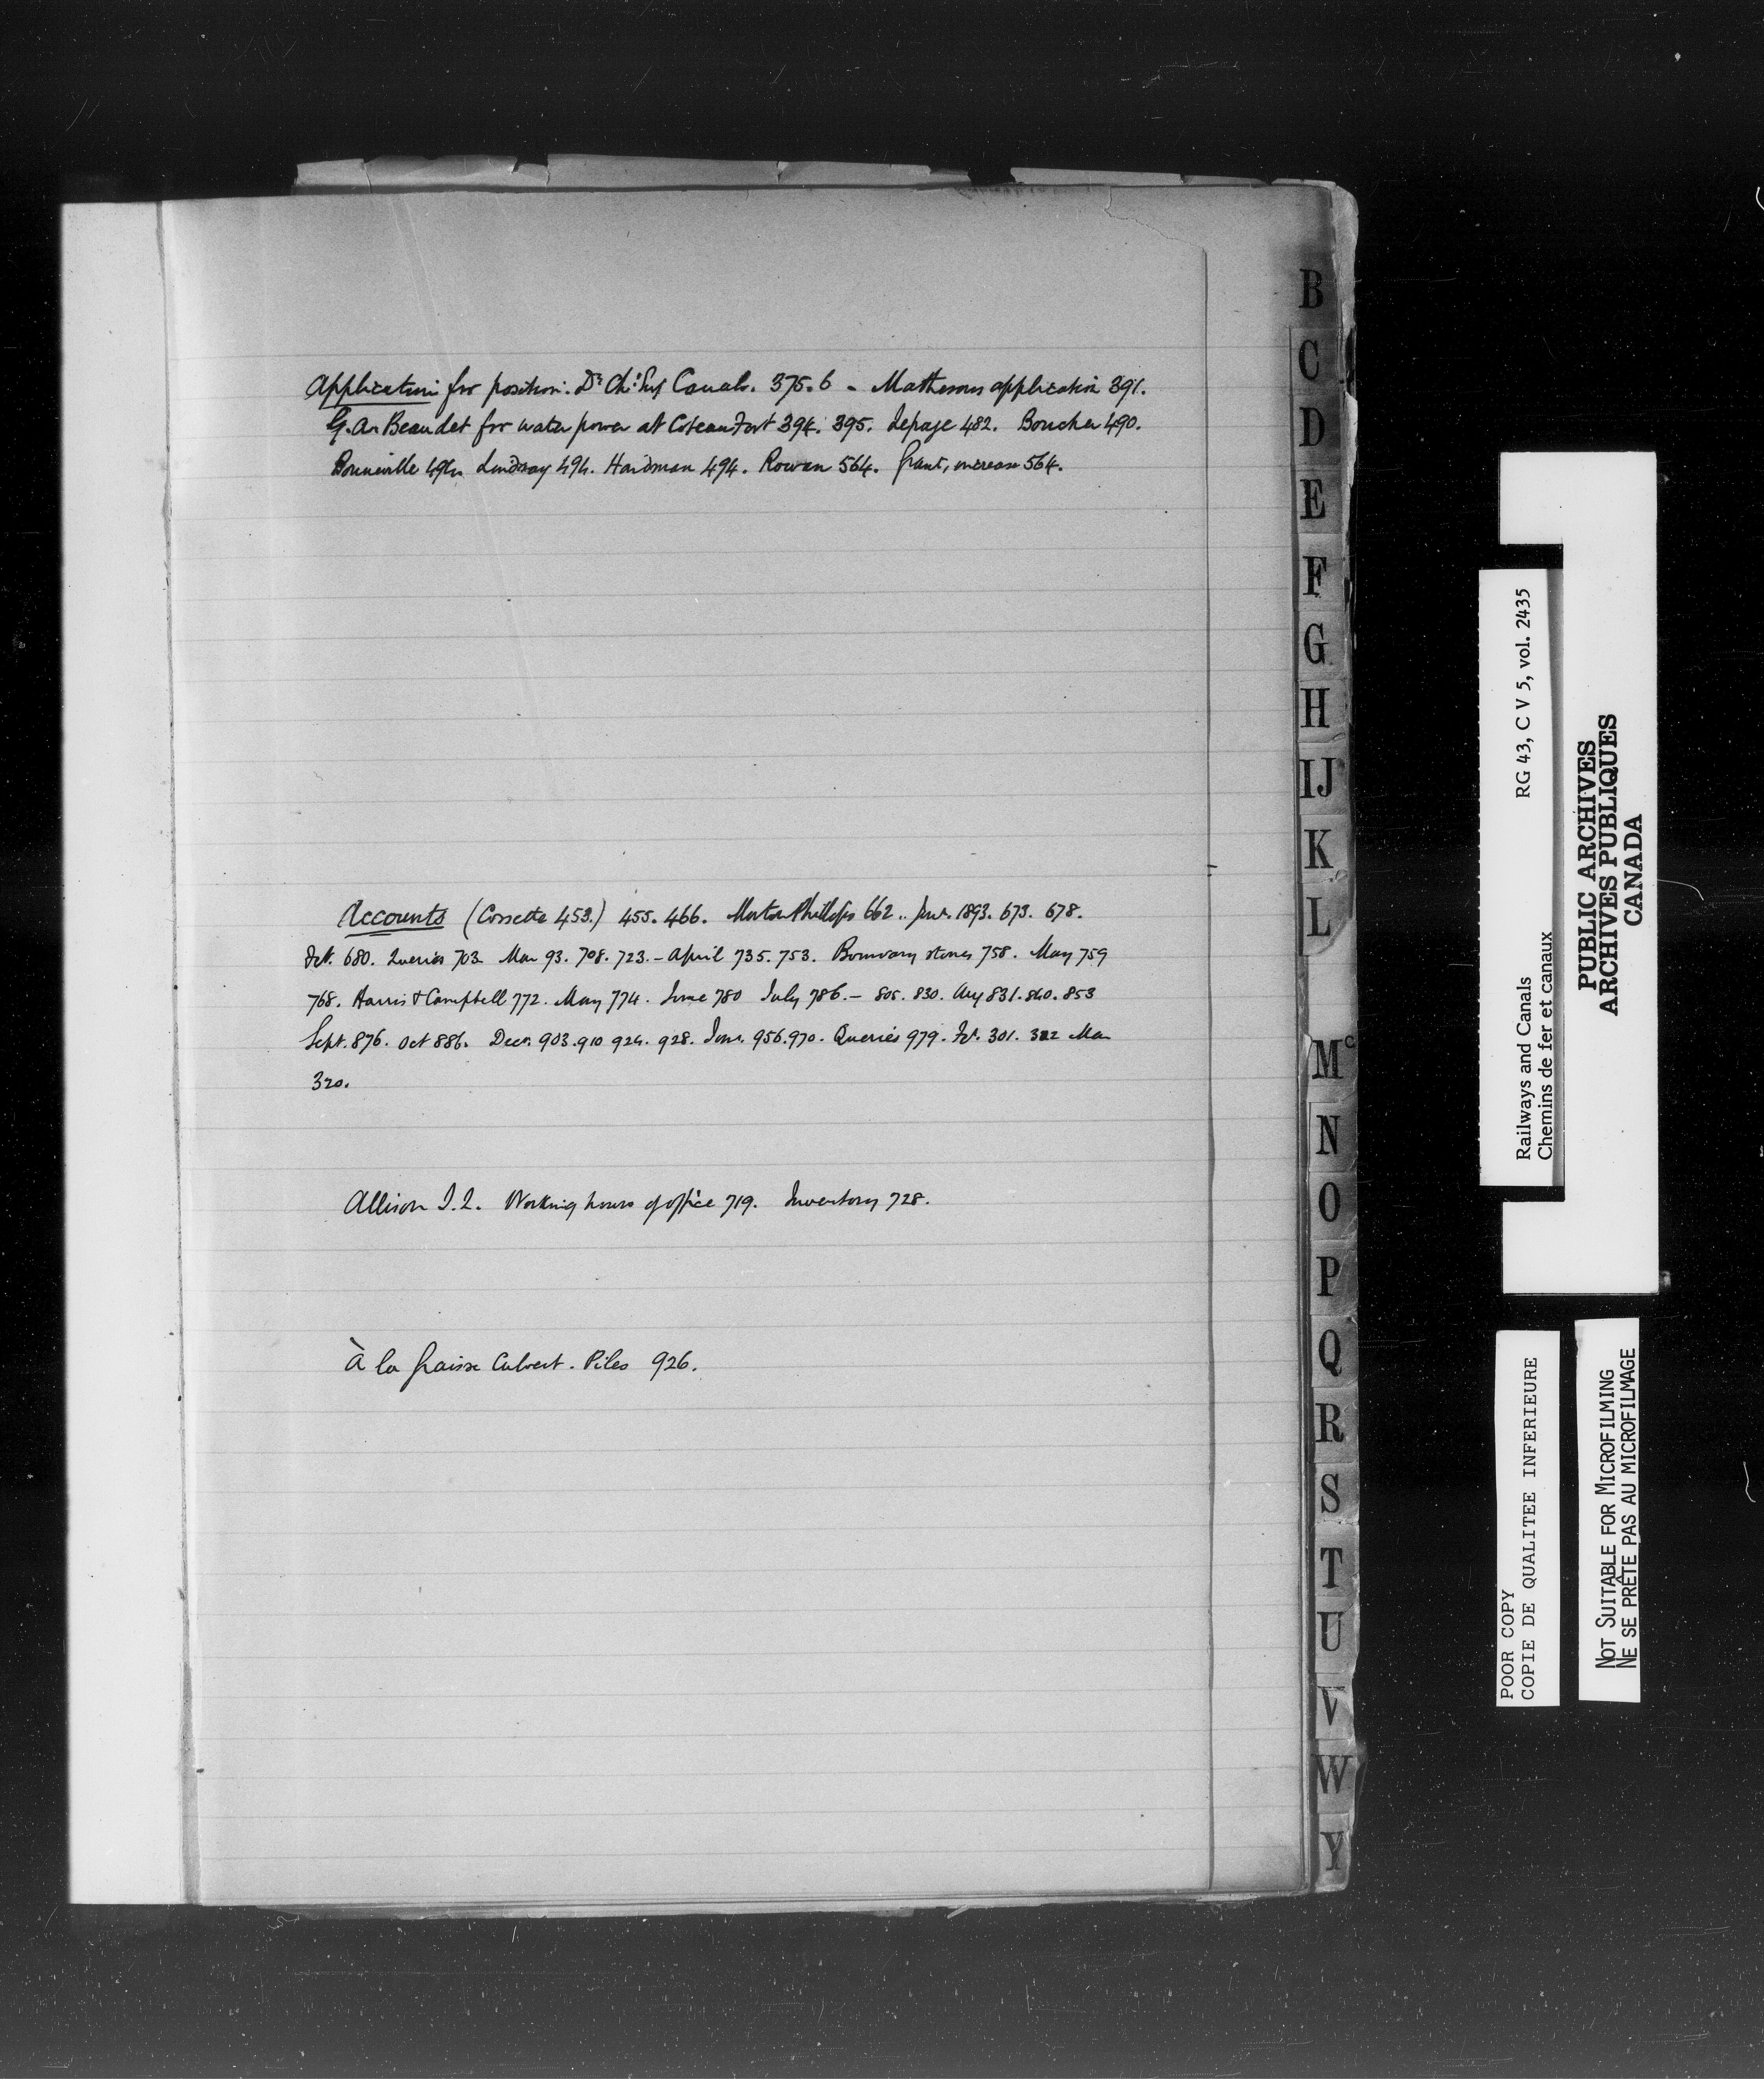 Application for position. Dr Ch: Sup Canals. 375.6 - Mathesons application 391.
G.A. Beaudet for water power at Coteau Fort 394. 395. Lepage 482. Boucher 490.
Bonneville 494 Lindsay 494. Hardman 494. Rowan 564. Grant, increase 564.
Accounts (Cossette 453.) 455. 466. Morton Phillips 662.. Jan. 1893. 673. 678.
680. Queries 703 Mar 93. 708. 723. - April 735. 753. Boundary stones 758. May 759
768. Harris & Campbell 772. May 774. June 780 July 786. - 805. 830. Aug 831. 840. 853
Sept. 876. Oct 886. Decr. 903. 910 924. 928. Jan. 956. 970. Queries 979. Fe. 301. 322 Mar
320.
Allison J.L. Working hours of office 719. Inventory 728.
À la graisse Culvert. Piles 926.
B
C
D
E
F
G
H
IJ
K
L
Mc
N
O
P
Q
R
S
T
U
V
W
Y
Railways and Canals RG 43, C V 5, vol. 2435
Chemins de fer et canaux
PUBLIC ARCHIVES
ARCHIVES PUBLIQUES
CANADA
POOR COPY
COPIE DE QUALITEE INFERIEURE
NOT SUITABLE FOR MICROFILMING
NE SE PRÊTE PAS AU MICROFILMAGE